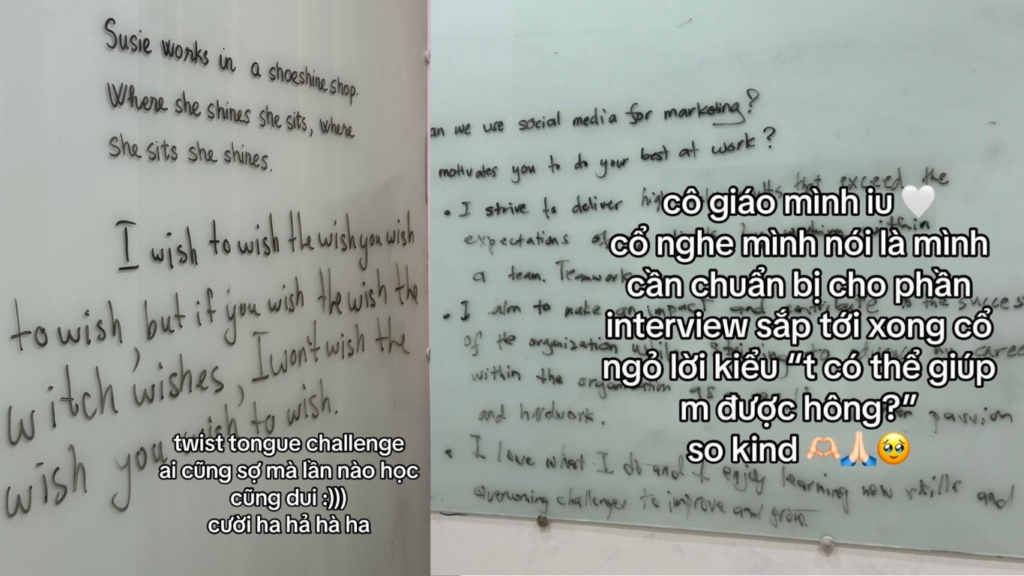 Susie works in a shoeshine shop.
Where she shines she sits, where
She sits she shines.
I wish to wish the wish you wish
to wish, but if you wish the wish the
witch wishes, I won't wish the
wish you wish to wish.
twist tongue challenge
ai cũng sợ mà lần nào học
cũng dui :)))
cười ha hả hà ha
an we use social media for marketing?
motivates you to do your best at work?
• I strive to deliver that exceed the
expectations within
a team. Teamwork
• I aim to make an impact and contribute to the success
of the organization while
within the organization passion
and hardwork.
• I love what I do and I enjoy learning new skills and
overcoming challenges to improve and grow.
cô giáo mình iu 🤍
cổ nghe mình nói là mình
cần chuẩn bị cho phần
interview sắp tới xong cổ
ngỏ lời kiểu “t có thể giúp
m được hông?”
so kind 🫶🏻🙏🏻🥹